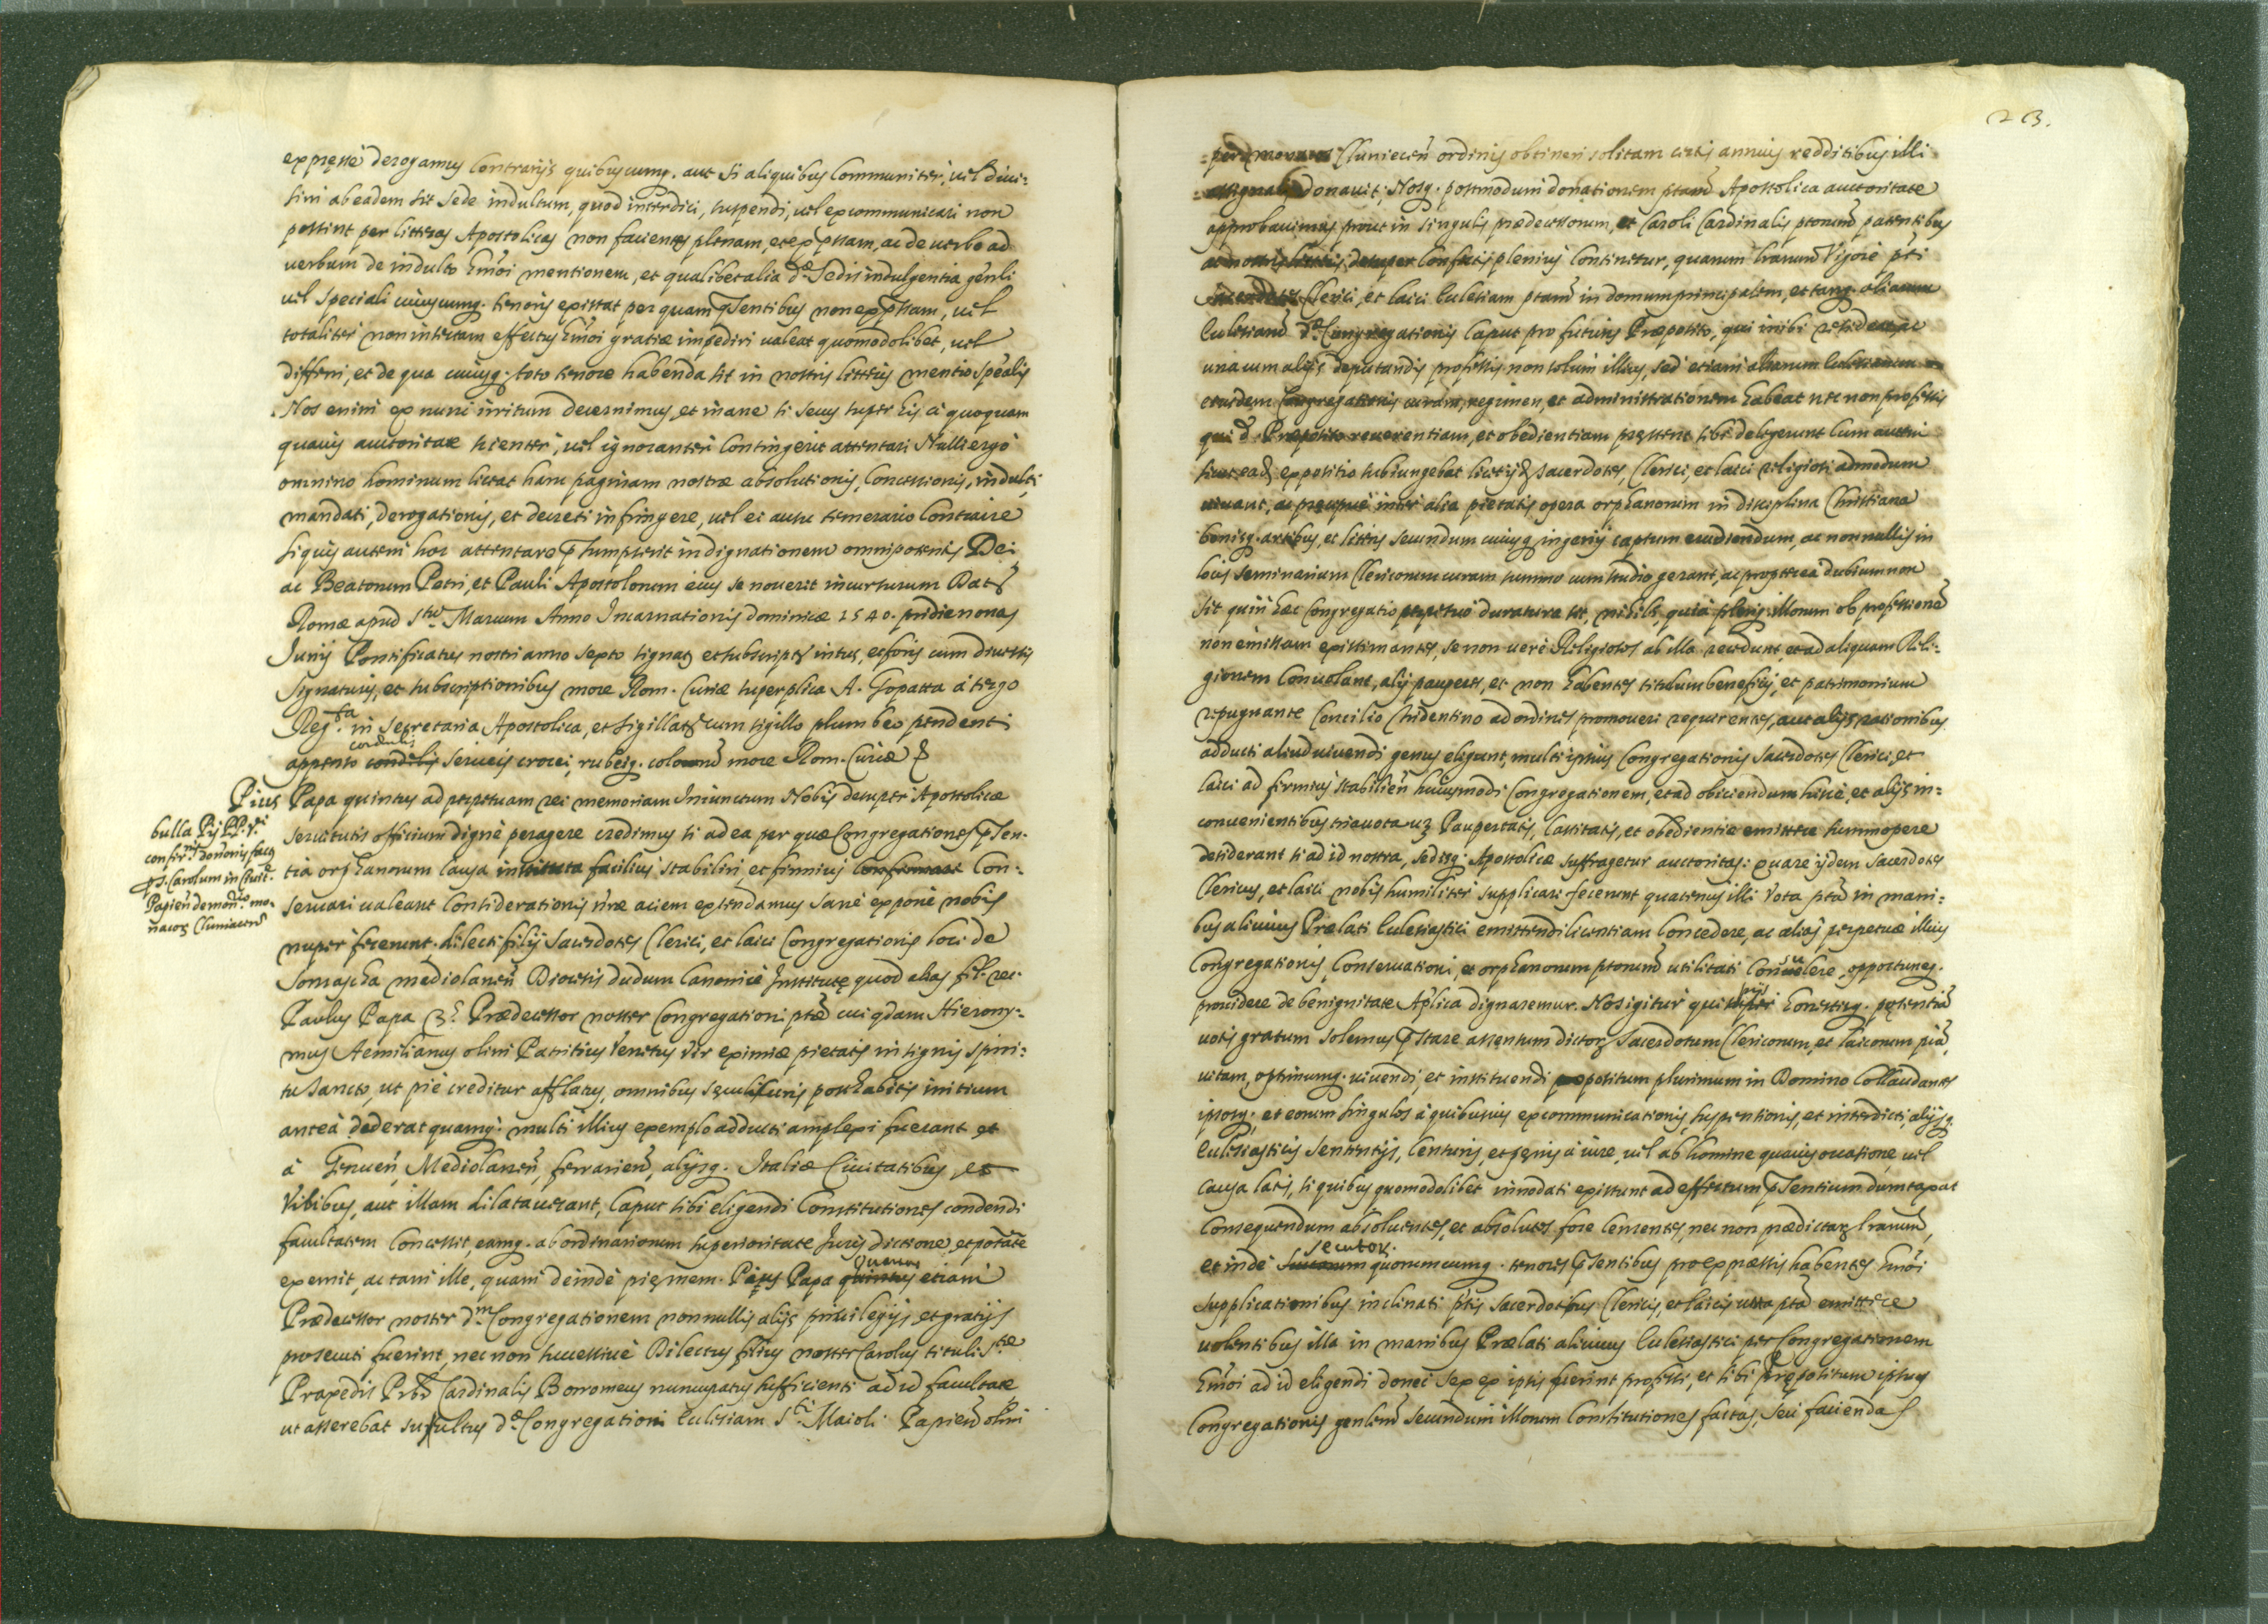 expressè derogamus Contrarijs quibuscumq. aut si aliquibus Communiter, uel diui=
sim ab eadem sit Sede indultum, quod interdici, suspendi, uel excommunicari non
possint per litteras Apostolicas non facientes plenam, et exp̄ssam, ac de uerbo ad
uerbum de indulto hm̄oi mentionem, et qualibet alia dᵃ Sedis indulgentia gēnli
uel speciali cuiuscumq. tenoris existat per quam p̄sentibus non exp̄ssam, uel
totaliter non insertam effectus hm̄oi gratiæ impediri ualeat quomodolibet, uel
differri, et de qua cuiusq. toto tenore habenda sit in nostris litteris mentio spēalis
Nos enim ex nunc irritum decernimus, et inane si secus super his à quoquam
quauis auctoritate scienter, uel ignoranter Contingerit attentari Nulli ergo
omnino hominum liceat hanc paginam nostræ absolutionis, Concessionis, indulti,
mandati, derogationis, et decreti infringere, uel ei ausu temerario Contraire
siquis autem hoc attentare p̄sumpserit indignationem omnipotentis Dei
ac Beatorum Petri, et Pauli Apostolorum eius se nouerit incursurum Dat
Romæ apud Stū Marcum Anno Incarnationis dominicæ 1540. pridie nonas
Junij Pontificatus nostri anno sexto signat et subscript intus, et foris cum diuersis
signaturis, et subscriptionibus more Rom. Curiæ superplica A. Gopatta à tergo
Regᵗᵃ in secretaria Apostolica, et sigillat cum sigillo plumbeo pendenti
cordulis
appenso condulis sericeis crocei, rubeiq. colorum more Rom. Curiæ
Pius Papa quintus ad perpetuam rei memoriam Iniunctum Nobis desuper Apostolicæ
bulla Pij PP. Vᵗⁱ
seruitutis officium dignè peragere credimus si ad ea per quæ Congregationes p̄sen-
p S. Carolum in Ciuitᵉ
tia orphanorum Causa instituta facilius stabiliri, et firmius Confirmari Con=
seruari ualeant Considerationis nr̄æ aciem extendamus Sanè exponi nobis
nacos Cluniacen̄
nuper fecerunt dilecti filij Sacerdotes Clerici, et laici Congregationis loci de
Somascha mediolanen̄ Diocesis dudum Canonicè Institutę quod alias fęl. rec.
Paulus Papa 3.ˢ Prædecessor noster Congregationi ptᵉ cui qdam Hierony=
mus Aemilianus olim Patritius Venetus Vir eximiæ pietatis insignis spiri=
tu Sancto, ut piè creditur afflatus, omnibus sęculi curis posthabitis initium
anteà dederat quamq. multi illius exemplo adducti amplexi fuerant et
à Genuen̄, Mediolanen̄, ferrarien̄, alijsq. Italiæ Ciuitatibus et
Vrbibus, aut illam dilatauerant, Caput sibi eligendi Constitutiones condendi
facultatem Concessit, eamq. ab ordinariorum superioritate Jurisdictione, et potāte
quartus
exemit, ac tam ille, quam deinde pię mem. Pius Papa quintus etiam
Prædecessor noster dᵐ Congregationem nonnullis alijs priuilegijs et gratijs
prosecuti fuerint, nec non successiuè Dilectus filius noster Carolus tituli Stæ
Praxedis Prb̄r Cardinalis Borromeus nuncupatus sufficienti ad id facultate
ut asserebat suffultus dᵉ Congregationi Eccłesiam Sᵗⁱ Maioli Papien̄ olim
23.
Cluniacen̄ ordinis obtineri solitam certis annuis redditibus illi
donauit, Nosq. postmodum donationem ptam̄ Apostolica auctoritate
approbauimus prout in singulis prædecessorum, et Caroli Cardinalis ptorum̄ patentibus
ac nostris litteris desuper Confectis plenius Continetur, quarum lr̄arum Vigore pti
Sacerdotes Clerici, et laici Ecclesiam ptam̄ in domum principalem, et tanq. aliarum
Ecclesiarum̄ dᵉ Congregationis Caput pro futuris Præposito, qui inibi resideat, ac
una cum alijs deputandis professis non solum illius, sed etiam aliarum Ecclesiarum
eiusdem Congregationis curam, regimen, et administrationem habeat nec non professis
qui dᵒ Præposito reuerentiam, et obedientiam prestent sibi delegerunt Cum autem
sicut ead expositio subiungebat licet ijd Sacerdotes, Clerici, et laici religiosè admodum
uiuant, ac precipuè inter alia pietatis opera orphanorum in disciplina Christiana
bonisq. artibus, et litteris secundum cuiusq. ingenij captum erudiendum, ac nonnullis in
locis Seminarium Clericorum curam summo cum studio gerant, ac propterea dubium non
sit quin hæc Congregatio perpetuò duratura sit, nihil, quia pleriq. illorum ob professionē
non emissam existimantes, se non uerè Religiosos ab illa recedunt, et ad aliquam Reli=
gionem Conuolant, alij pauperes, et non habentes titulum beneficij, et patrimonium
repugnante Concilio Tridentino ad ordines promoueri nequeentes, aut alijs rationibus
adducti aliud uiuendi genus eligunt, multi ipsius Congregationis Sacerdotes Clerici, et
laici ad firmius stabilien̄ huiusmodi Congregationem, et ad obiciendum hisce, et alijs in=
conuenientibus tria uota uz Paupertatis, Castitatis, et obedientiæ emittere summopere
desiderant si ad id nostra, sedisq. Apostolicæ suffragetur auctoritas: quare ijdem Sacerdotes
Clericus, et laici nobis humiliter supplicari fecerunt quatenus illi Vota ptā in mani=
bus alicuius Prælati Ecclesiastici emittendi licentiam Concedere, ac aliàs perpetuæ illius
Congregationis Conseruationi, et orphanorum ptorum̄ utilitati Consulere, opportuneq.
prouidere de benignitate Aplica dignaremur. Nos igitur qui pijs honestisq. pętentiū
uotis gratum solemus p̄stare assensum dictor Sacerdotum Clericorum, et laicorum piā
uitam, optimumq. uiuendi, et instituendi propositum plurimum in Domino Collaudantes
ipsosq; et eorum singulos à quibusuis excommunicationis, suspensionis, et interdicti, alijsq.
Ecclesiasticis sententijs, Censuris, et pęnis à iure, uel ab homine quauis occasione, uel
causa latis, si quibus quomodolibet innodati existunt ad effectum p̄sentium dumtaxat
Consequendum absoluentes, et absolutos fore Censentes, nec non prædictar lr̄arum,
secutor.
et inde quorumcumq. tenores p̄sentibus pro expressis habentes hm̄oi
supplicationibus inclinati ptis Sacerdotibus Clericis, et laicis uota ptā emittere
uolentibus illa in manibus Prælati alicuius Ecclesiastici per Congregationem
hm̄oi ad id eligendi donec sex ex ipsis fuerint professi, et sibi prępositum ipsius
Congregationis genlem̄ secundum illorum Constitutiones factas, seu faciendas